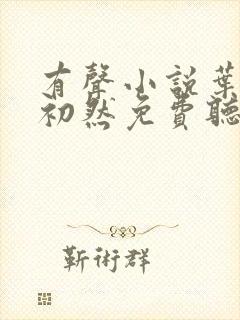 有聲小説葉
初然免費聽
靳術群